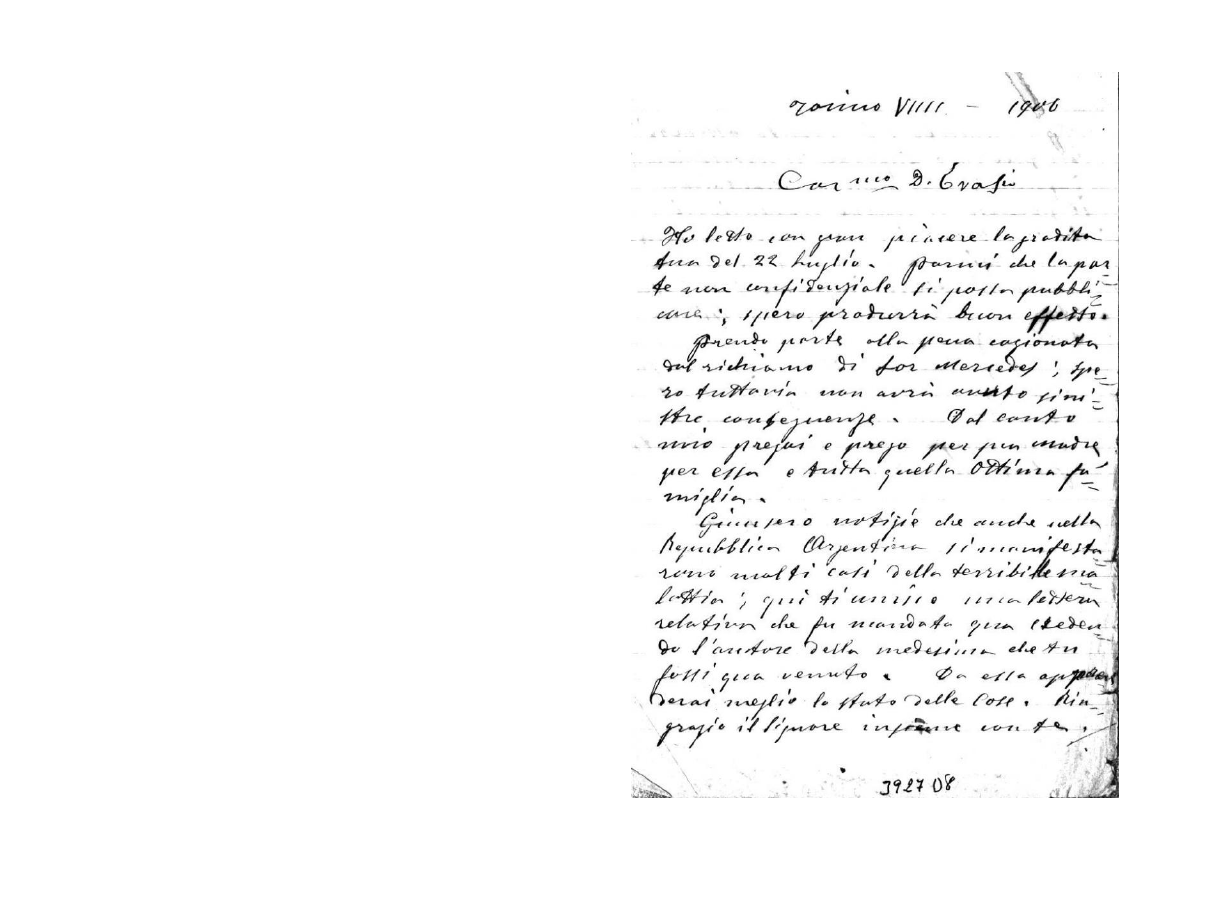 Torino VIIII - 1906
Car mo D. Evasio
Ho letto con gran piacere la gradita
tua del 22 luglio. Parmi che la par
te non confidenziale si possa pubbli=
care; spero produrrà buon effetto.
Prendo parte alla pena cagionata
dal richiamo di Sor Mercedes; spe=
ro tuttavia non avrà avuto sini=
stre conseguenze. Dal canto
mio pregai e prego per sua madre
per essa e tutta quella Ottima fa=
miglia.
Giunsero notizie che anche nella
Repubblica Argentina si manifesta
rono molti casi della terribile ma
lattia; qui ti unisco una lettera
relativa che fu mandata qua creden
do l'autore della medesima che tu
fossi qua venuto. Da essa appren
derai meglio lo stato delle Cose. Rin=
grazio il Signore insieme con te.
3927 D8